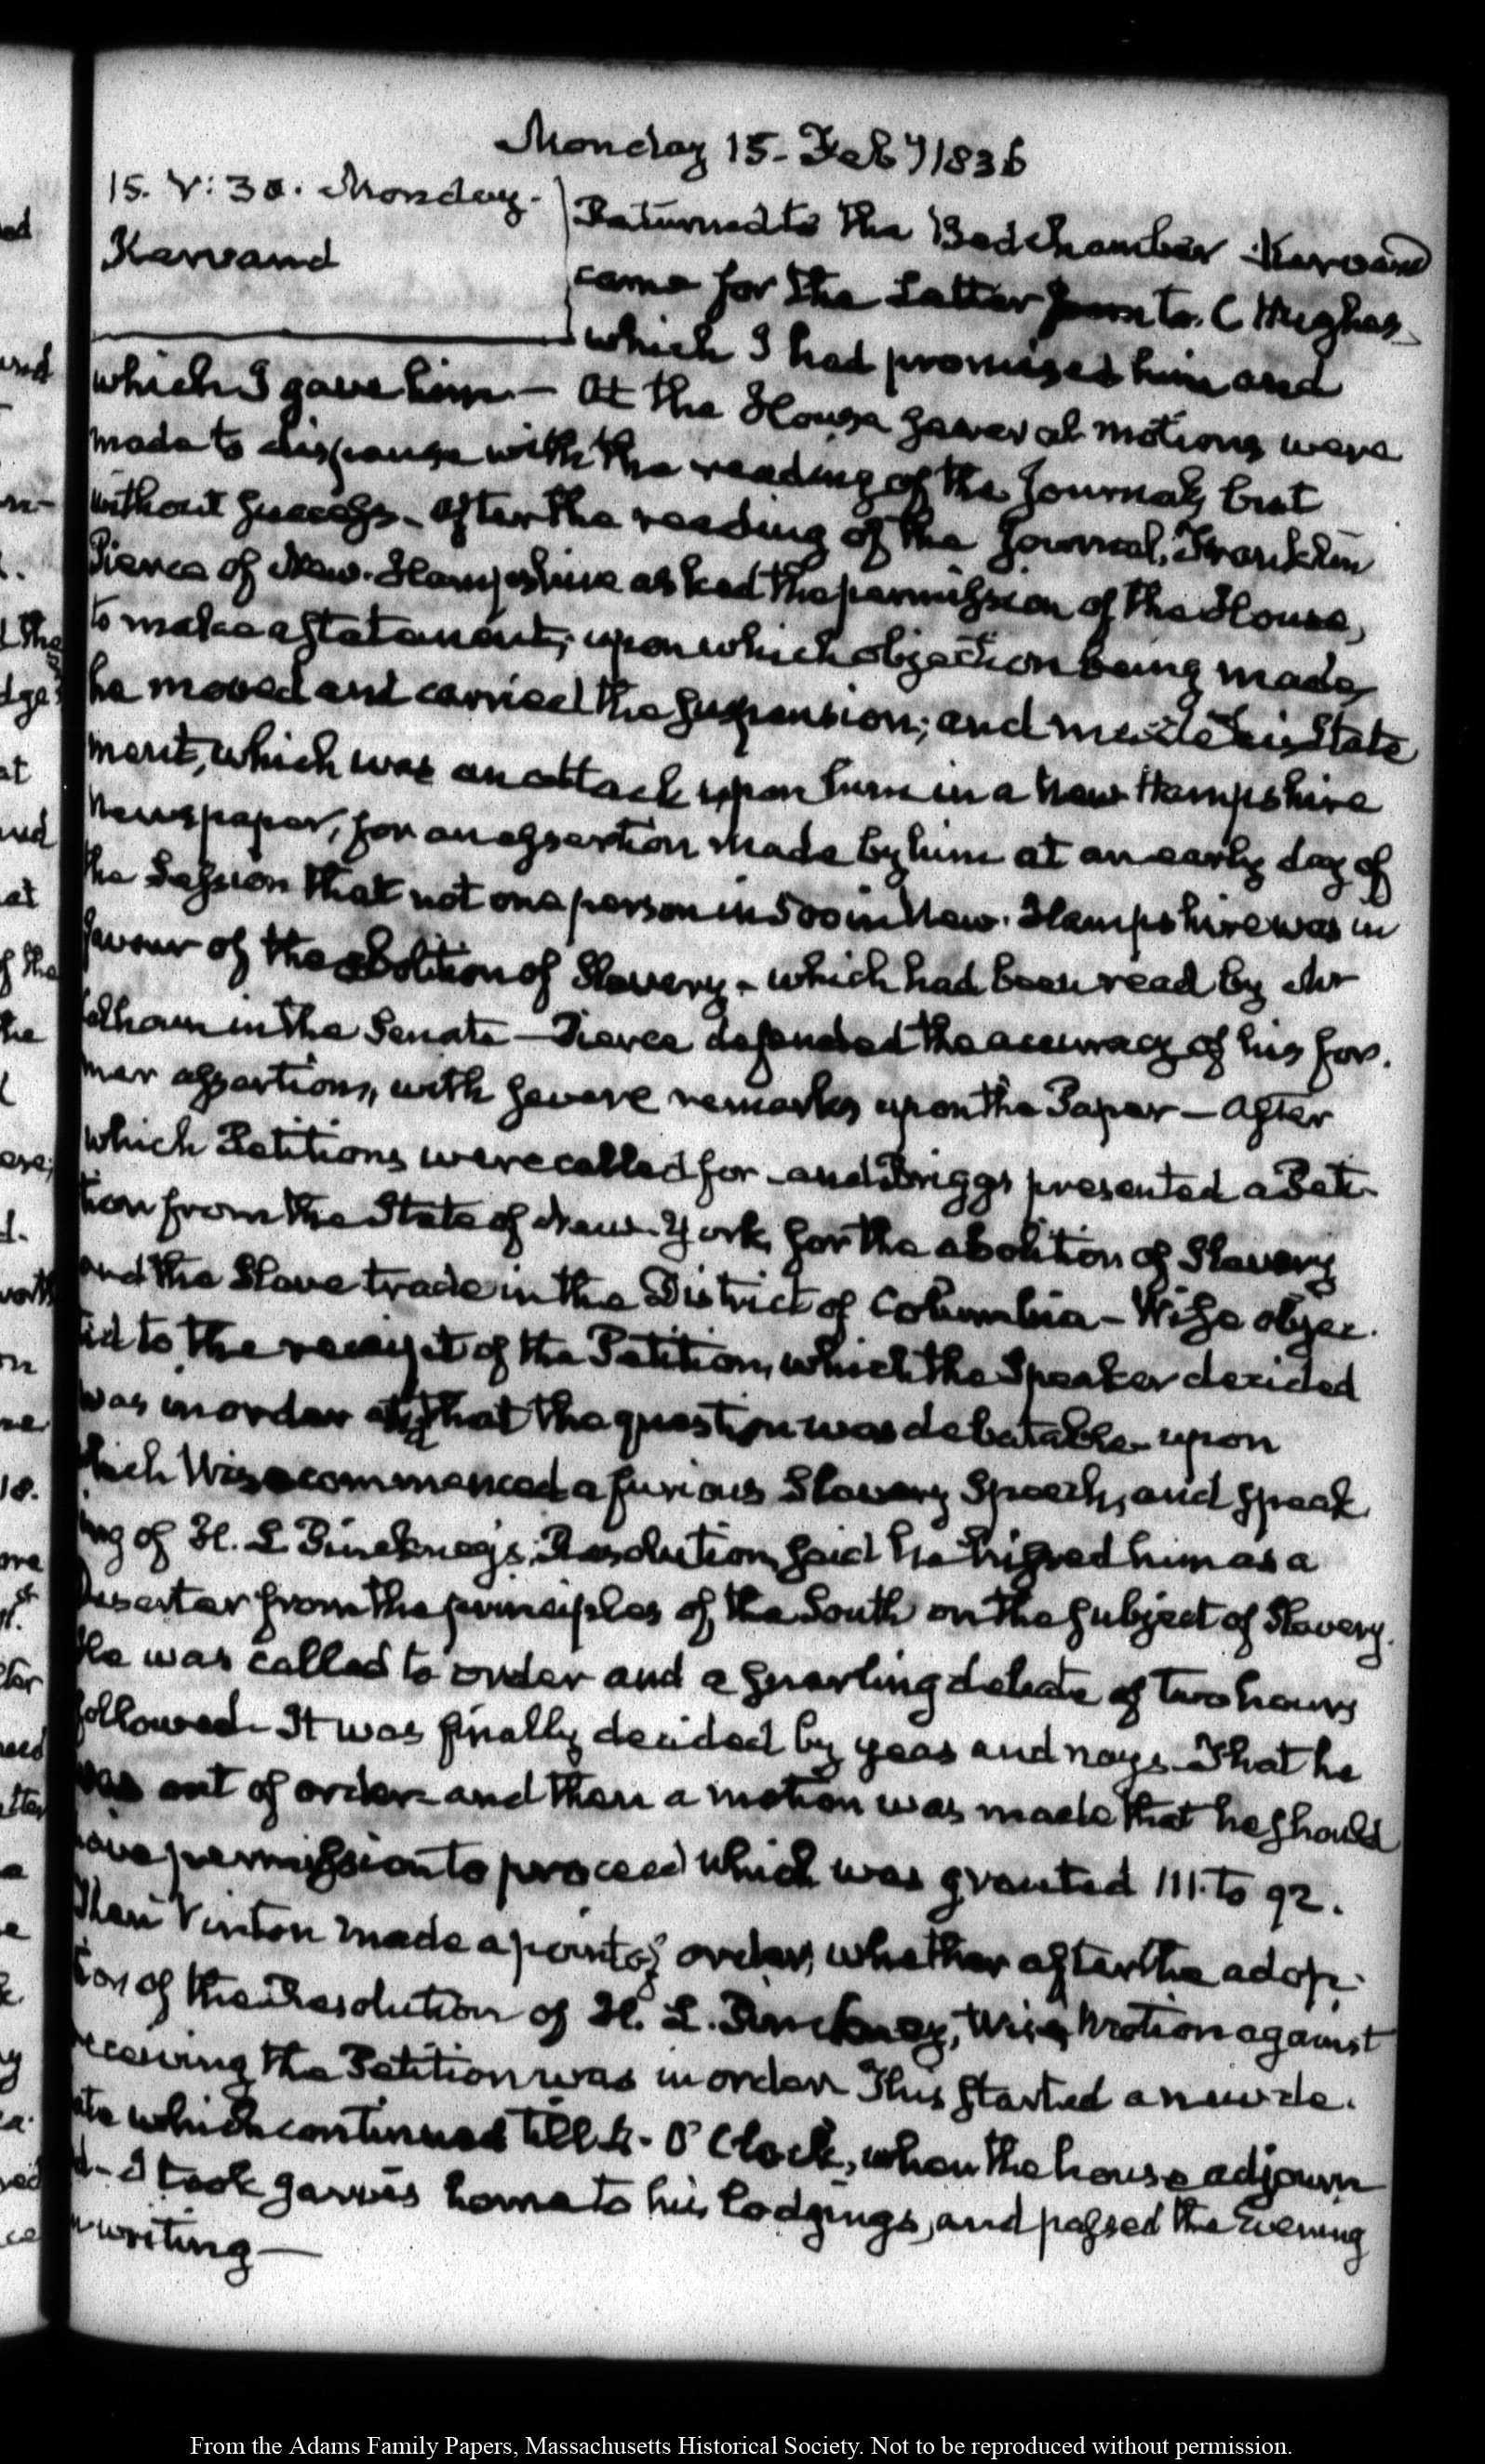 Monday 15. Feby 1836
15. V: 30. Monday.
Karvand
Returned to the Bedchamber Karvand
came for the Letter to C Hughes
which I had promised him and
which I gave him.— At the House several motions were
made to dispense with the reading of the Journal, but
without success. After the reading of the Journal, Franklin
Pierce of New-Hampshire asked the permission of the House,
to make a statement; upon which objection being made,
he moved and carried the suspension; and made his State
ment, which was an attack upon him in a New Hampshire
Newspaper, for an assertion made by him at an early day of
the Session that not one person in 500 in New-Hampshire was in
favour of the abolition of Slavery. which had been read by Mr
Calhoun in the Senate — Pierce defended the accuracy of his for-
mer assertions, with severe remarks upon the Paper — After
which Petitions were called for and Briggs presented a Peti-
tion from the State of New-York, for the abolition of Slavery
and the Slave trade in the District of Columbia — Wise objec-
ted to the receipt of the Petition, which the Speaker decided
was in order and that the question was debatable upon
which Wise commenced a furious Slavery Speech, and speak
ing of H. L Pinckney's Resolution said he hissed him as a
Deserter from the principles of the South on the subject of Slavery.
He was called to order and a snarling debate of two hours
followed. It was finally decided by yeas and nays. That he
was out of order and then a motion was made that he should
have permission to proceed which was granted 111. to 92.
Then Vinton made a point of order, whether after the adop-
tion of the Resolution of H. L. Pinckney, Wise's Motion against
receiving the Petition was in order. This started a new de-
bate which continued till O'Clock, when the house adjourn
ed — I took Jarvis home to his lodgings, and passed the Evening
in writing —
From the Adams Family Papers, Massachusetts Historical Society. Not to be reproduced without permission.